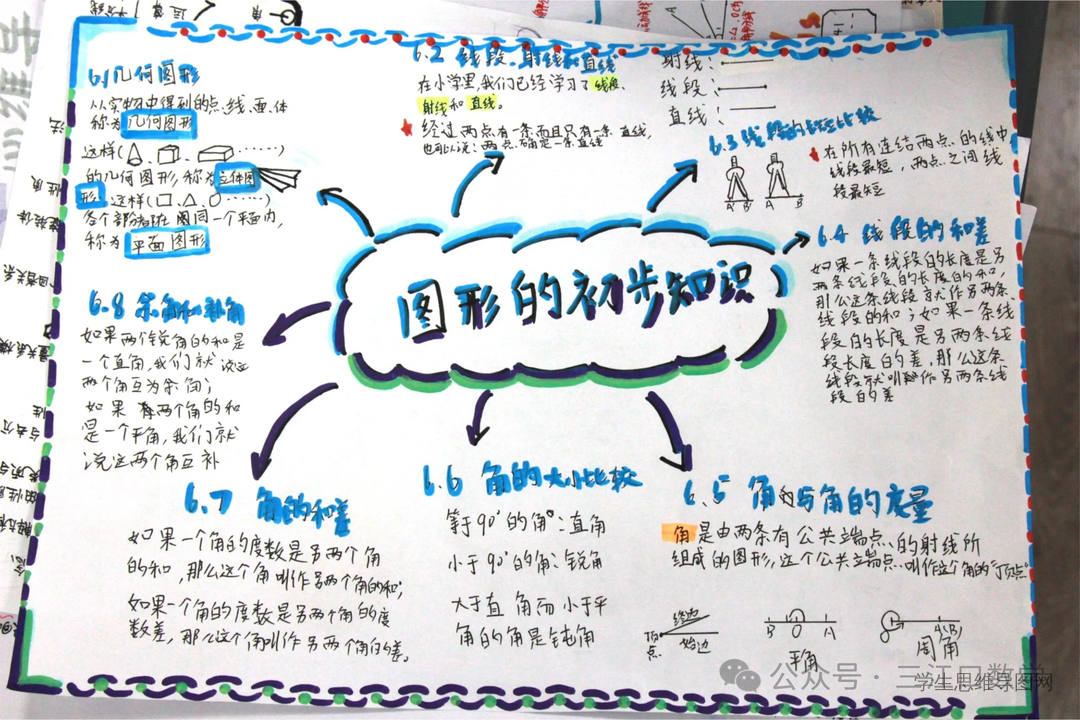 图形的初步知识
6.1 几何图形
从实物中得到的点、线、面、体
称为几何图形
这样(……)
的几何图形,称为立体图
形,这样(……)
各个部分都在同一个平面内,
称为平面图形
6.2 线段、射线和直线
在小学里,我们已经学习了线段、
射线和直线。
经过两点有一条而且只有一条直线,
也可以说:两点确定一条直线
射线:
线段:
直线:
6.3 线段的长短比较
在所有连结两点的线中
线段最短,两点之间线
段最短
A B
A B
6.4 线段的和差
如果一条线段的长度是另
两条线段的长度的和,
那么这条线段叫作另两条
线段的和;如果一条线
段的长度是另两条线
段长度的差,那么这条
线段就叫作另两条线
段的差
6.5 角与角的度量
角是由两条有公共端点的射线所
组成的图形,这个公共端点叫作这个角的“顶点”
顶点
终边
始边
B O A
平角
O A(B)
周角
6.6 角的大小比较
等于90°的角:直角
小于90°的角:锐角
大于直角而小于平
角的角是钝角
6.7 角的和差
如果一个角的度数是另两个角
的和,那么这个角叫作另两个角的和;
如果一个角的度数是另两个角的度
数差,那么这个角叫作另两个角的差。
6.8 余角和补角
如果两个锐角的和是
一个直角,我们就说这
两个角互为余角;
如果有两个角的和
是一个平角,我们就
说这两个角互补
公众号·三江口数学
学生思维导图网